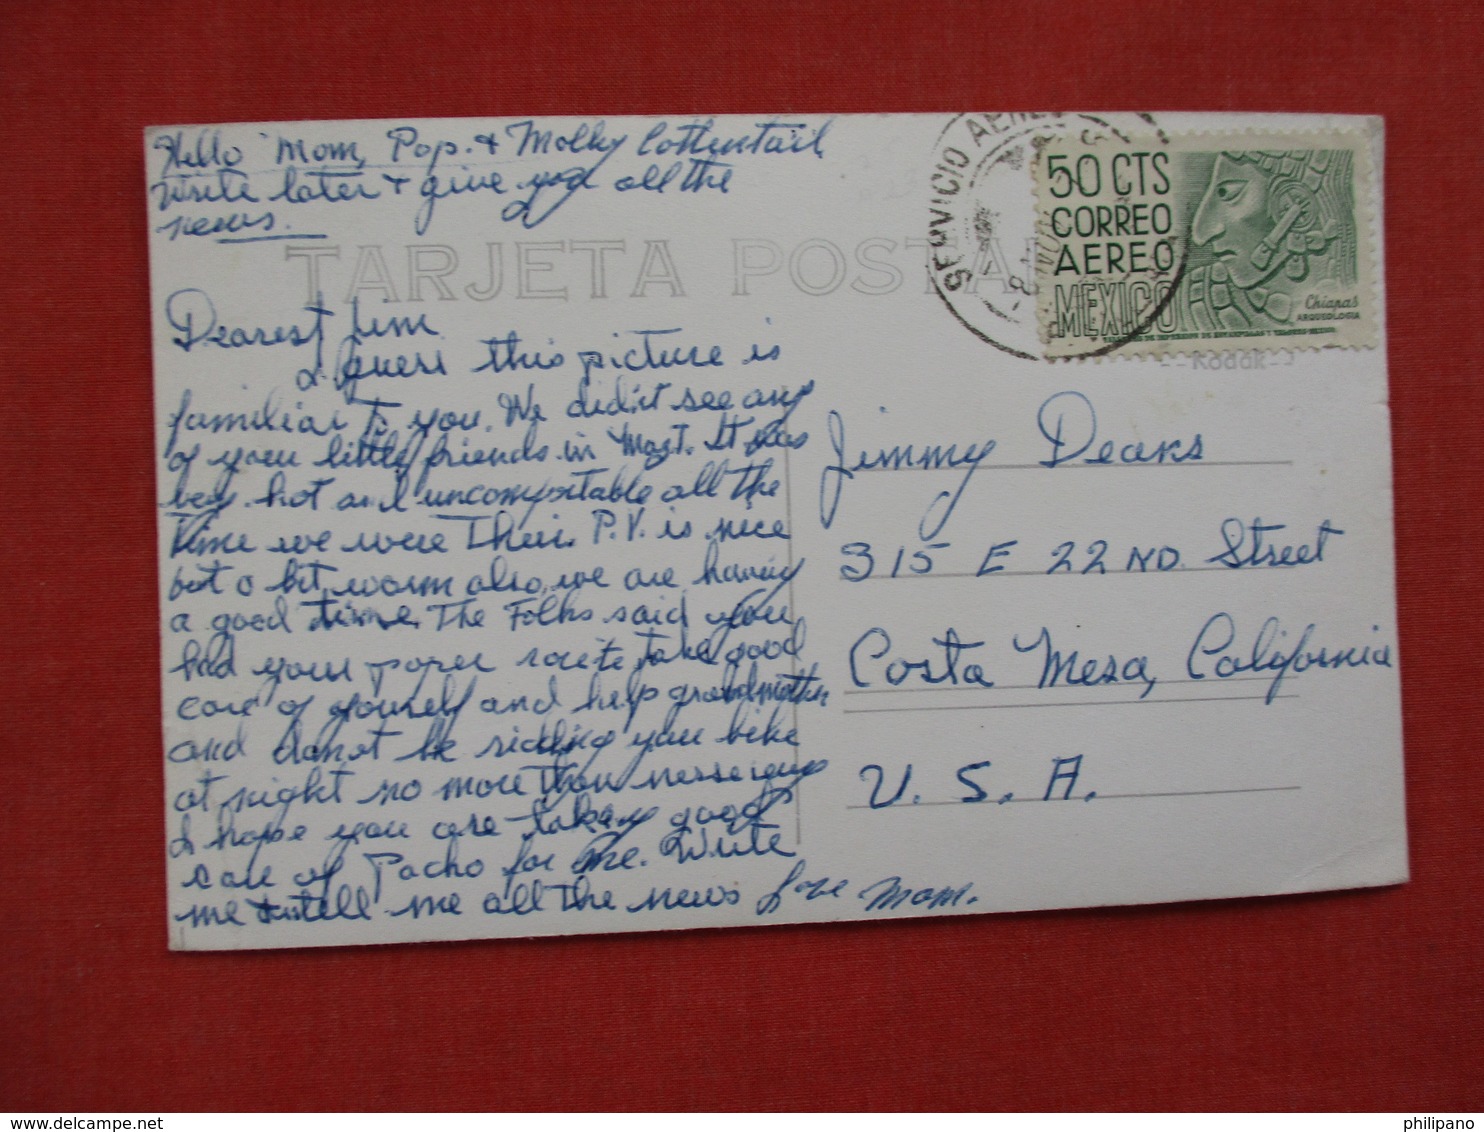 Hello Mom, Pop. & Molly Cottentail
write later & give you all the
news.
TARJETA POSTAL
Dearest Jim
I guess this picture is
familiar to you. We didn't see any
of your little friends in Mazt. It was
very hot and uncomfortable all the
time we were Their. P.V. is nice
but a bit warm also, we are having
a good time. The Folks said you
had your paper route, take good
care of yourself and help grandmother
and donot be ridding your bike
at night no more than
I hope you are taking good
care of Pacho for me. Write
me & tell me all the news Love Mom.
SERVICIO AEREO
50 CTS
CORREO
AEREO
MEXICO
Chiapas
ARQUEOLOGIA
Kodak
Jimmy Deaks
315 E 22ND. Street
Costa Mesa, California
U. S. A.
philipano
www.delcampe.net